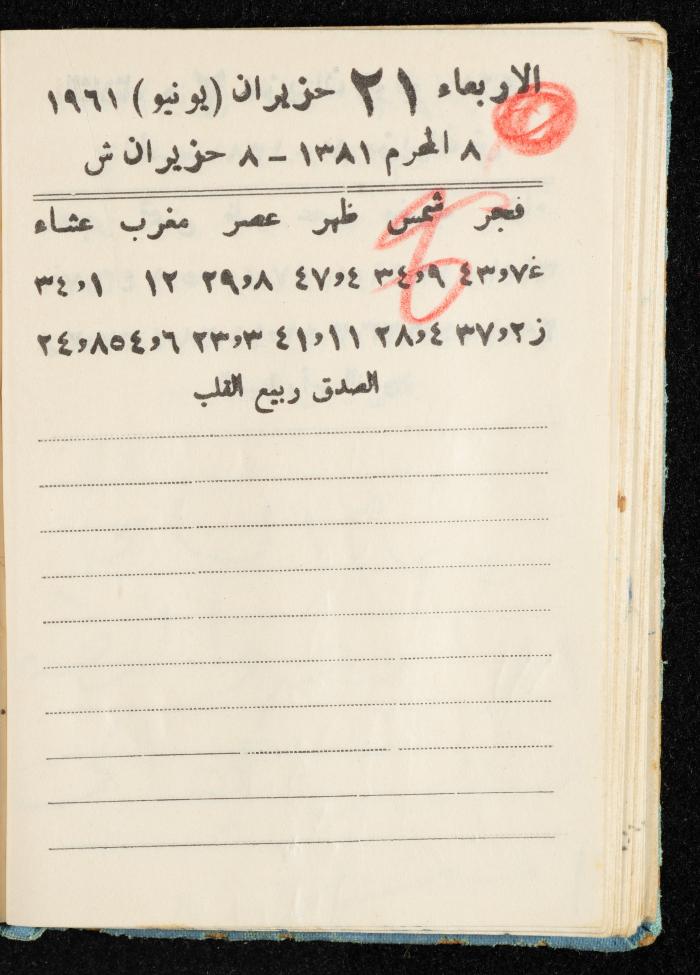 الاربعاء ٢١ حزيران (يونيو) ١٩٦١
٨ المحرم ١٣٨١ – ٨ حزيران ش
فجر شمس ظهر عصر مغرب عشاء
غ٧و٤٣ ٩و٣٤ ٤و٤٧ ٨و٢٩ ١٢ ١و٣٤
ز٢و٣٧ ٤و٢٨ ١١و٤١ ٣و٢٣ ٦و٥٤ ٨و٢٤
الصدق ربيع القلب